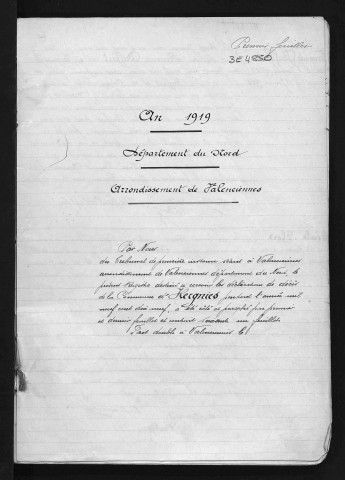 Premier feuillet
3E 4880
An 1919
Département du Nord
Arrondissement de Valenciennes
Par Nous
du Tribunal de première instance séant à Valenciennes
arrondissement de Valenciennes département du Nord, le
présent registre destiné à recevoir les déclarations de décès
de la Commune de Hergnies pendant l'année mil
neuf cent dix neuf, a été coté et paraphé par premier
et dernier feuillet et contient soixante un feuillets
Fait double à Valenciennes le